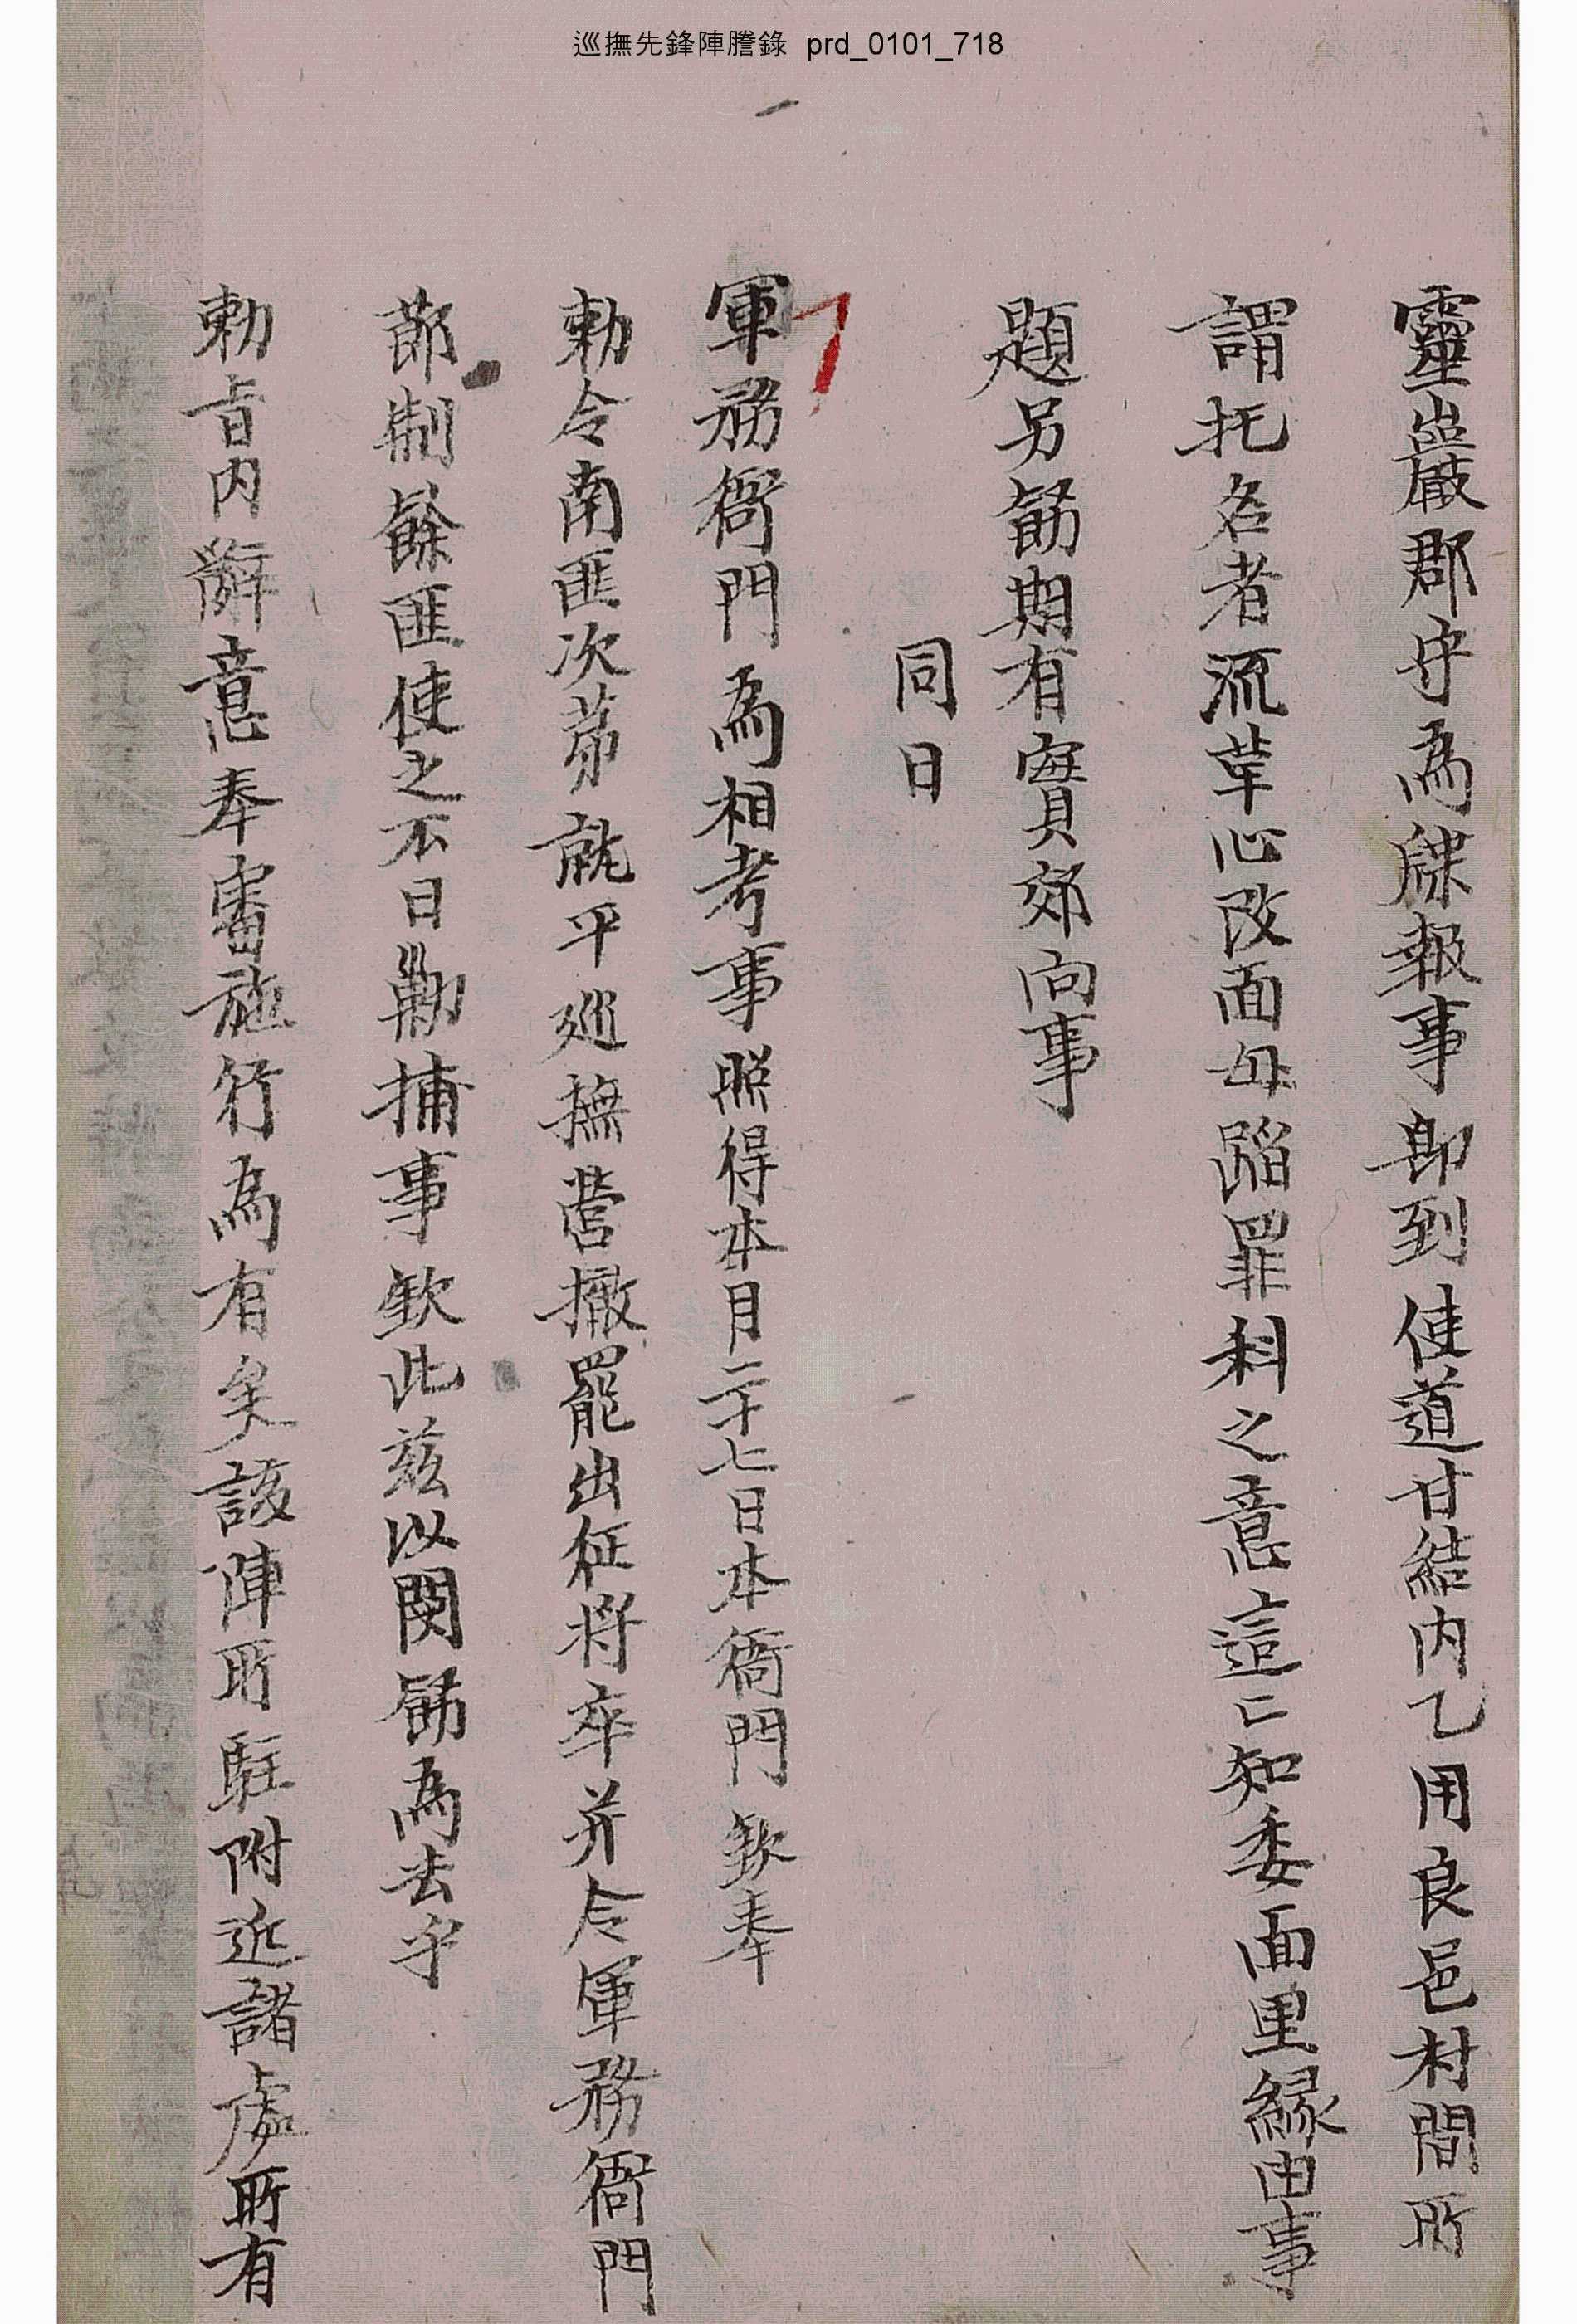 巡撫先鋒陣謄錄 prd_0101_718
靈巖郡守爲牒報事卽到使道甘結內乙用良邑村間所
謂托名者流革心改面毋蹈罪科之意這這知委面里緣由事
題另飭期有實効向事
同日
軍務衙門爲相考事照得本月二十七日本衙門欽奉
勅令南匪次第就平巡撫營撤罷出征將卒幷令軍務衙門
節制餘匪使之不日勦捕事欽此玆以關飭爲去乎
勅旨內辭意奉審施行爲有矣該陣所駐附近諸處所有